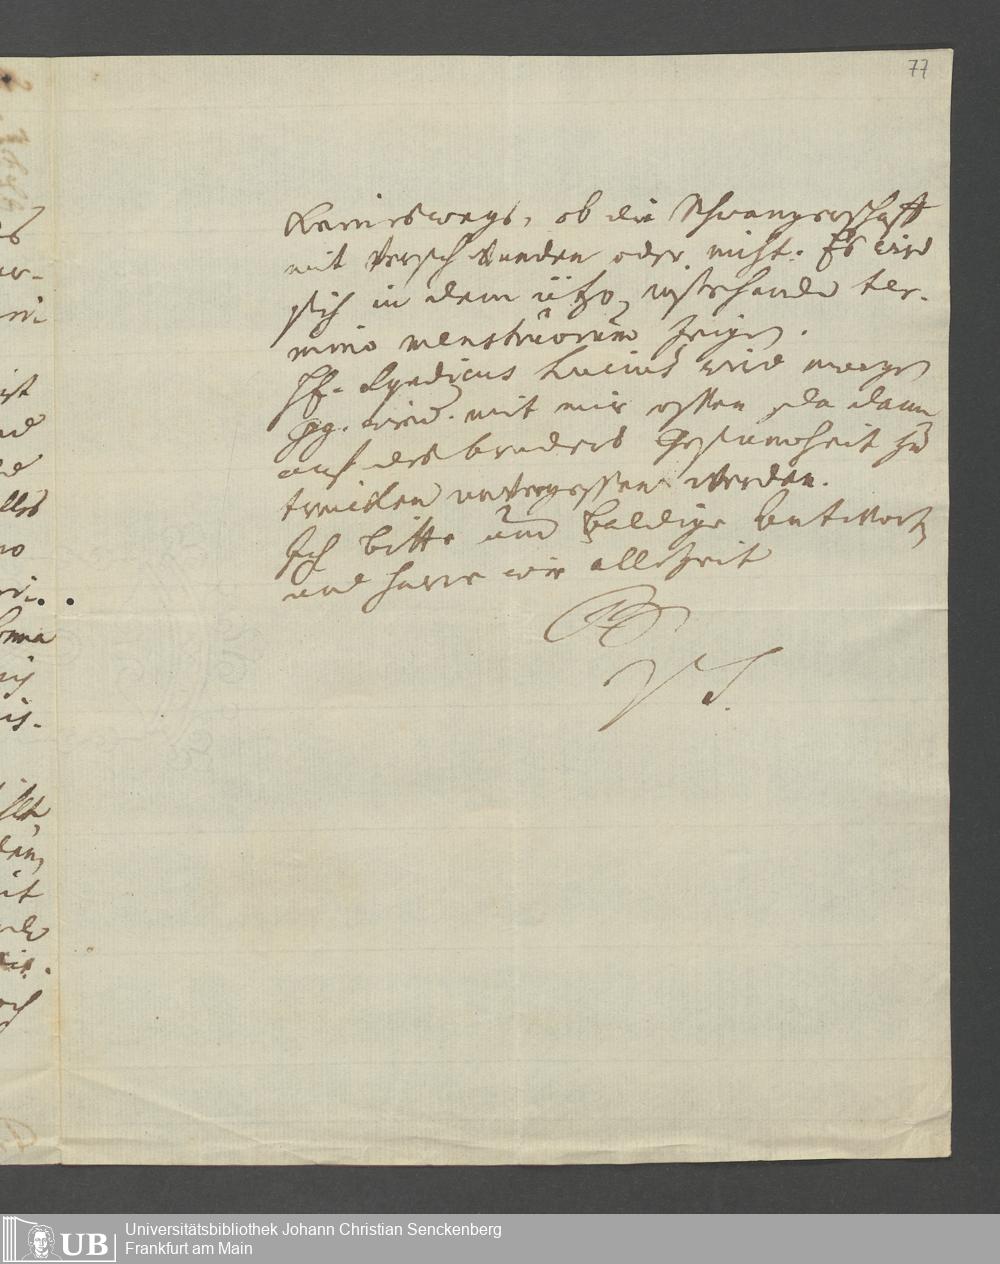 77
keineswegs, ob die Schwangerschafft
mit verschwunden oder nicht. Es wird
sich in dem itzo bestehende ter-
mino menstruorum zeigen.
H. Syndicus Lucius wird morgen
wird mit mir essen, da dann
auf des bruders Gesundheit zu
trincken unvergessen werden.
Ich bitte um baldige Antwort
und harre wie allezeit
UB
Universitätsbibliothek Johann Christian Senckenberg
Frankfurt am Main